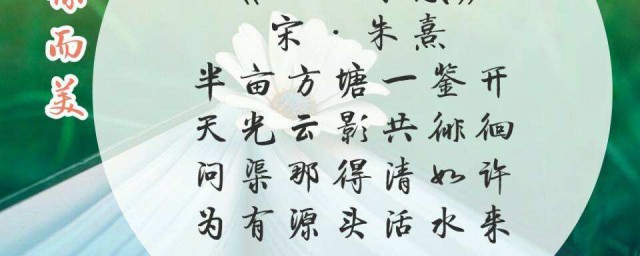 宋·朱熹
半亩方塘一鉴开
天光云影共徘徊
问渠那得清如许
为有源头活水来
而美